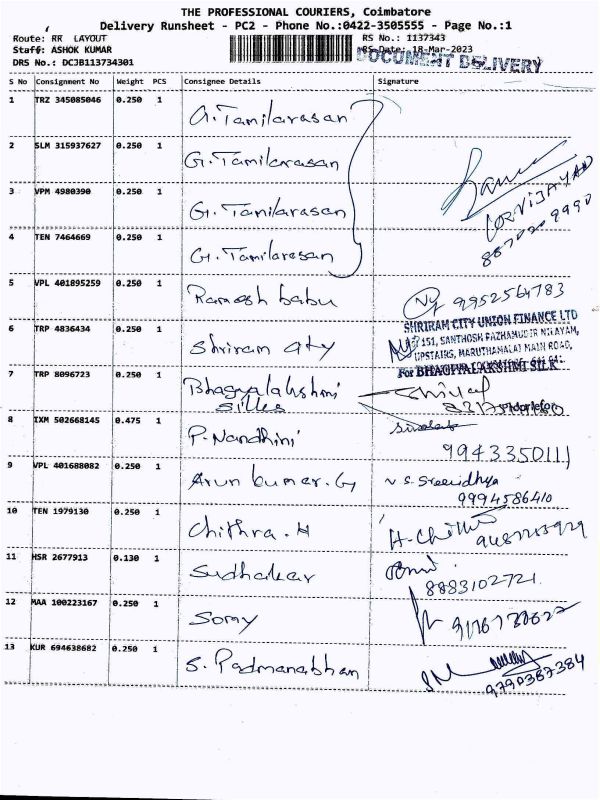 THE PROFESSIONAL COURIERS, Coimbatore
Delivery Runsheet - PC2 - Phone No.:0422-3505555 - Page No.:1
Route: RR LAYOUT
RS No.: 1137343
Staff: ASHOK KUMAR
RS Date: 18-Mar-2023
DOCUMENT DELIVERY
DRS No.: DCJB113734301
S No Consignment No Weight PCS Consignee Details Signature
1 TRZ 345085046 0.250 1 G. Tamilarasan
2 SLM 315937627 0.250 1 G. Tamilarasan
3 VPM 4980390 0.250 1 G. Tamilarasan
4 TEN 7464669 0.250 1 G. Tamilarasan
5 VPL 401895259 0.250 1 Ramesh babu 9952564783
6 TRP 4836434 0.250 1 Shriram City
SHRIRAM CITY UNION FINANCE LTD
UPSTAIRS, MARUTHAMALAI MAIN ROAD,
7 TRP 8096723 0.250 1 Bhagyalakshmi
Silks
For BHAGYALAKSHMI SILK
Proprietor
8 IXM 502668145 0.475 1 P. Nandhini
9943350111
9 VPL 401688082 0.250 1 Arun kumar. G
9994586410
10 TEN 1979130 0.250 1 Chithra. H
11 HSR 2677913 0.130 1 Sudhakar
8883102721
12 MAA 100223167 0.250 1 Sony
13 KUR 694638682 0.250 1 S. Padmanabhan
9790367384